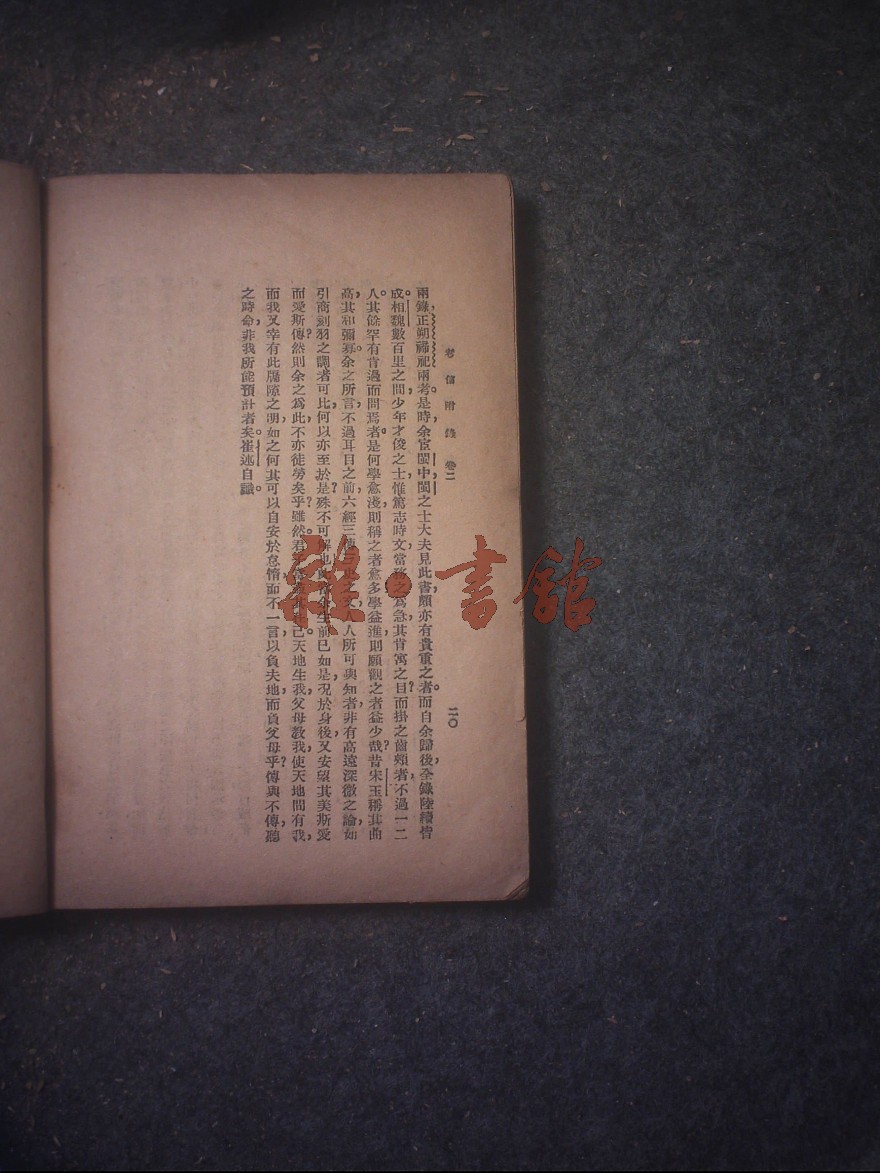 考信附錄 卷二
二〇
兩錄，正朔禘祀兩考。是時，余宦閩中，閩之士大夫見此書頗亦有貴重之者。而自余歸後，全錄陸續皆
成。相魏數百里之間，少年才俊之士，惟篤志時文，當務之為急，其肯寓之目而掛之齒頰者，不過一二
人。其餘罕有肯過而問焉者。是何學愈淺，則稱之者愈多，學益進，則願觀之者益少哉？昔宋玉稱其曲
高，其和彌寡。余之所言，不過耳目之前，六經三傳之文，人人所可與知者，非有高遠深微之論，如
引商刻羽之調者可比，何以亦至於是？殊不可解也。生前已如是，況於身後，又安望其美斯愛
而愛斯傳？然則余之為此，不亦徒勞矣乎？雖然，君子當盡其在己。天地生我，父母教我，使天地間有我，
而我又幸有此牖隙之明，如之何其可以自安於怠惰而不一言，以負夫地，而負父母乎？傳與不傳，聽
之時命，非我所能預計者矣。崔述自識。
雜·書館